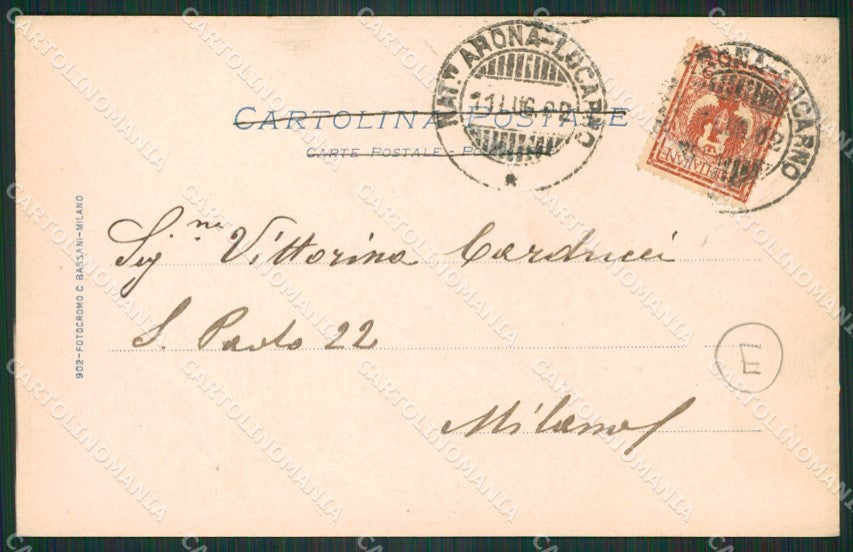 NAT. ARONA-LOCARNO
11 LUG 02
ARONA-LOCARNO
CARTOLINA POSTALE
CARTE POSTALE -
902-FOTOCROMO C BASSANI-MILANO
Sig.na Vittorina Carducci
S. Paolo 22
Milano
CARTOLINOMANIA